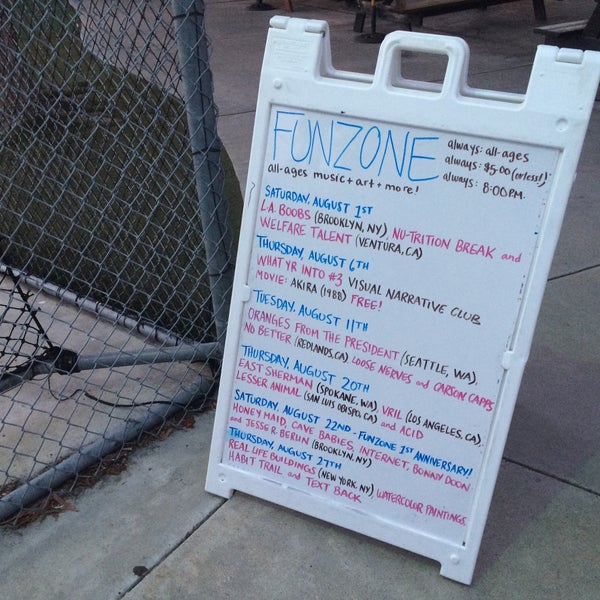 FUNZONE
all-ages music + art + more!
always: all-ages
always: $5.00 (or less!)
always: 8:00 P.M.
SATURDAY, AUGUST 1ST
L.A. BOOBS (BROOKLYN, NY), NU-TRITION BREAK and
WELFARE TALENT (VENTURA, CA)
THURSDAY, AUGUST 6TH
WHAT YR INTO #3 VISUAL NARRATIVE CLUB
MOVIE: AKIRA (1988) FREE!
TUESDAY, AUGUST 11TH
ORANGES FROM THE PRESIDENT (SEATTLE, WA),
NO BETTER (REDLANDS, CA), LOOSE NERVES and CARSON CAPPS
THURSDAY, AUGUST 20TH
EAST SHERMAN (SPOKANE, WA), VRIL (LOS ANGELES, CA),
LESSER ANIMAL (SAN LUIS OBISPO, CA) and ACID
SATURDAY, AUGUST 22ND - FUNZONE 1ST ANNIVERSARY!
HONEY MAID, CAVE BABIES, INTERNET, BONNY DOON
and JESSE R. BERLIN (BROOKLYN, NY)
THURSDAY, AUGUST 27TH
REAL LIFE BUILDINGS (NEW YORK, NY), WATERCOLOR PAINTINGS,
HABIT TRAIL and TEXT BACK